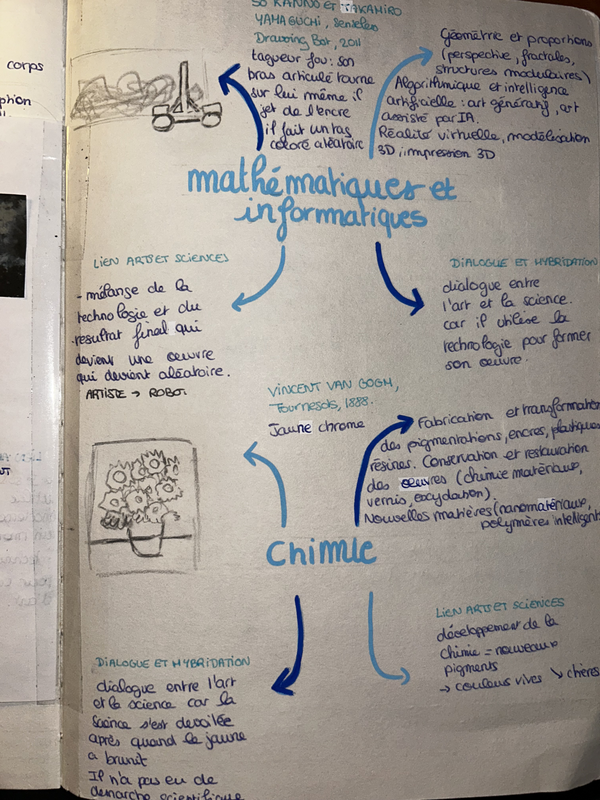 corps
SO KANNO ET TAKAMIRO
YAMAGUCHI, Senseless
Drawing Bot, 2011
tagueur fou : son
bras articulé tourne
sur lui même il
jet de l'encre
il fait un tas
coloré aléatoire
Géométrie et proportions
(perspective, fractales,
structures modulaires)
Algorithmique et intelligence
artificielle : art génératif, art
assisté par IA.
Réalité virtuelle, modélisation
3D, impression 3D
mathématiques et
informatiques
LIEN ARTS ET SCIENCES
- mélange de la
technologie et du
résultat final qui
devient une œuvre
qui devient aléatoire.
ARTISTE → ROBOT
DIALOGUE ET HYBRIDATION
dialogue entre
l'art et la science.
car il utilise la
technologie pour former
son œuvre.
VINCENT VAN GOGH,
Tournesols, 1888.
Jaune chrome
Fabrication et transformation
des pigmentations, encres, plastiques
résines. Conservation et restauration
des œuvres (chimie matériaux,
vernis, oxydation).
Nouvelles matières (nanomatériaux,
polymères intelligent
Chimie
LIEN ARTS ET SCIENCES
développement de la
chimie = nouveaux
pigments
→ couleurs vives ↘ chères
DIALOGUE ET HYBRIDATION
dialogue entre l'art
et la science car la
Science s'est dévoilée
après quand le jaune
a brunit
Il n'a pas eu de
démarche scientifique